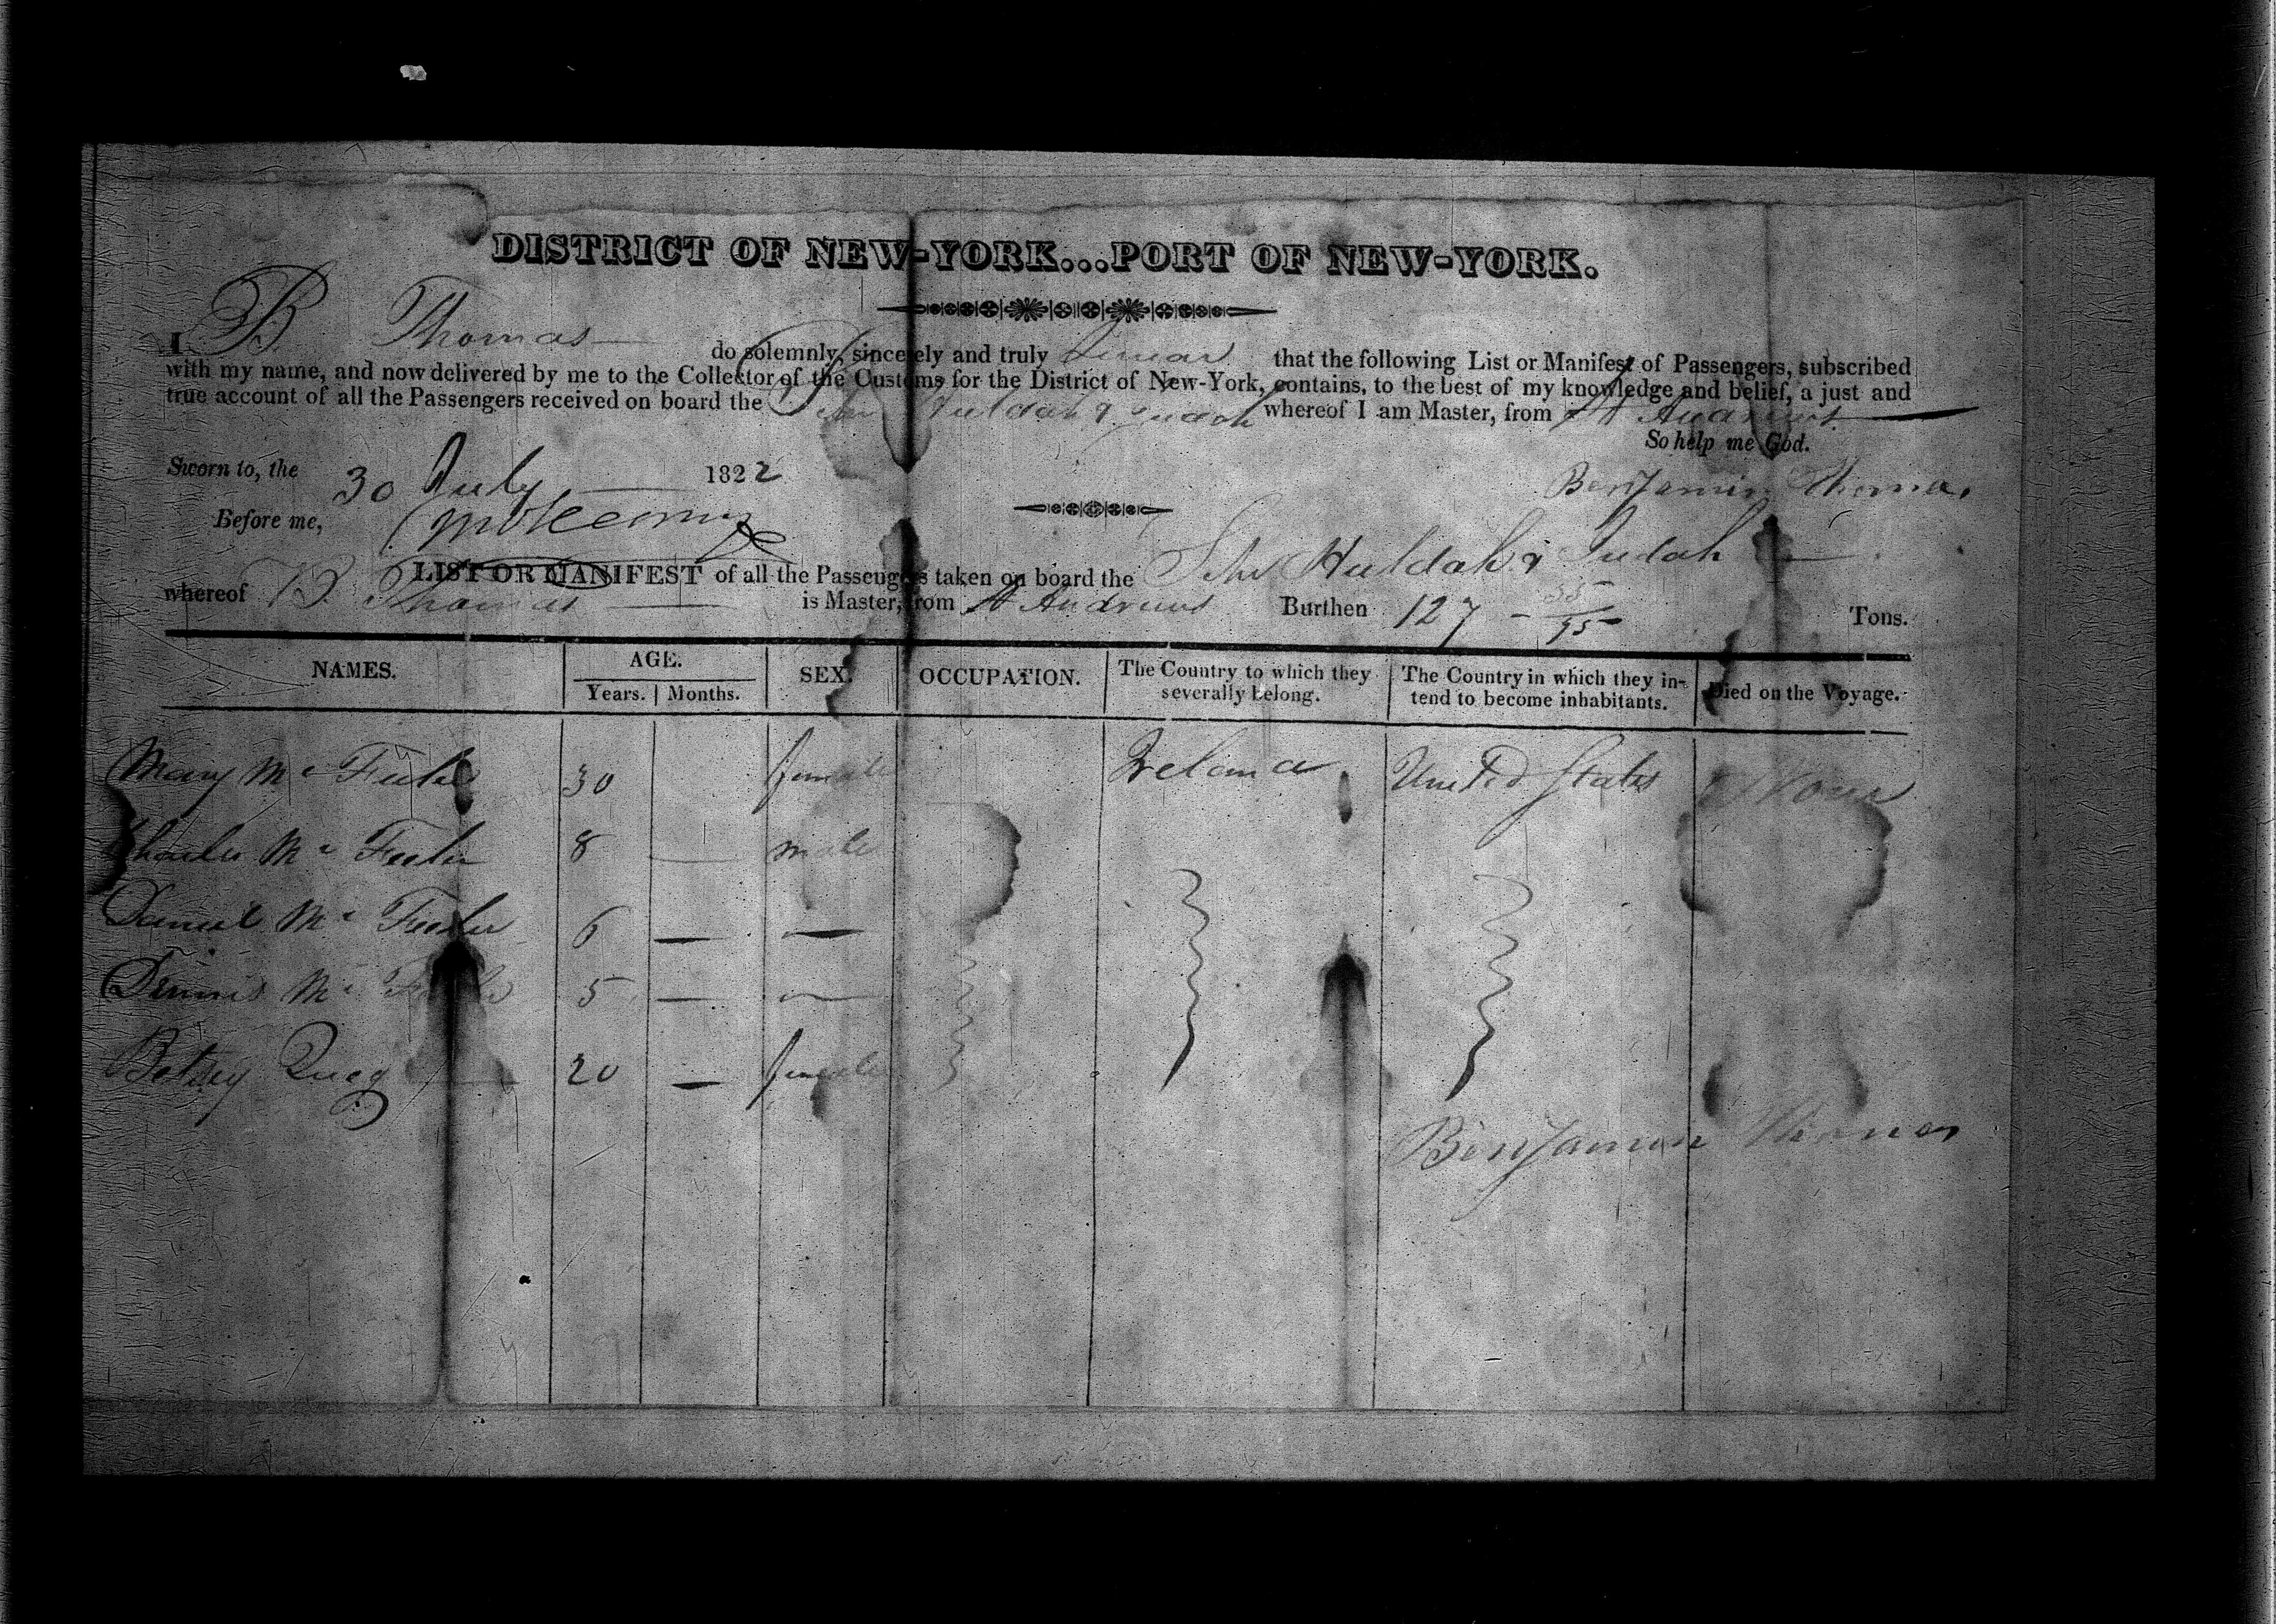 DISTRICT OF NEW-YORK...PORT OF NEW-YORK.
I B Thomas do solemnly, sincerely and truly Swear that the following List or Manifest of Passengers, subscribed
with my name, and now delivered by me to the Collector of the Customs for the District of New-York, contains, to the best of my knowledge and belief, a just and
true account of all the Passengers received on board the Schr Huldah & Judah whereof I am Master, from St Andrews
So help me God.
Sworn to, the 30 July 1822
Benjamin Thomas
Before me,
LIST OR MANIFEST of all the Passengers taken on board the Schr Huldah & Judah
whereof B. Thomas is Master, from St Andrews Burthen 127 - /95 Tons.
NAMES. AGE. SEX. OCCUPATION. The Country to which they severally belong. The Country in which they in- tend to become inhabitants. Died on the Voyage.
Years. Months.
Mary Mc 30 female Ireland United States None
Charles Mc 8 — male
Daniel Mc 6 — —
Dennis Mc 5 — —
Betsey 20 — female
Benjamin Thomas